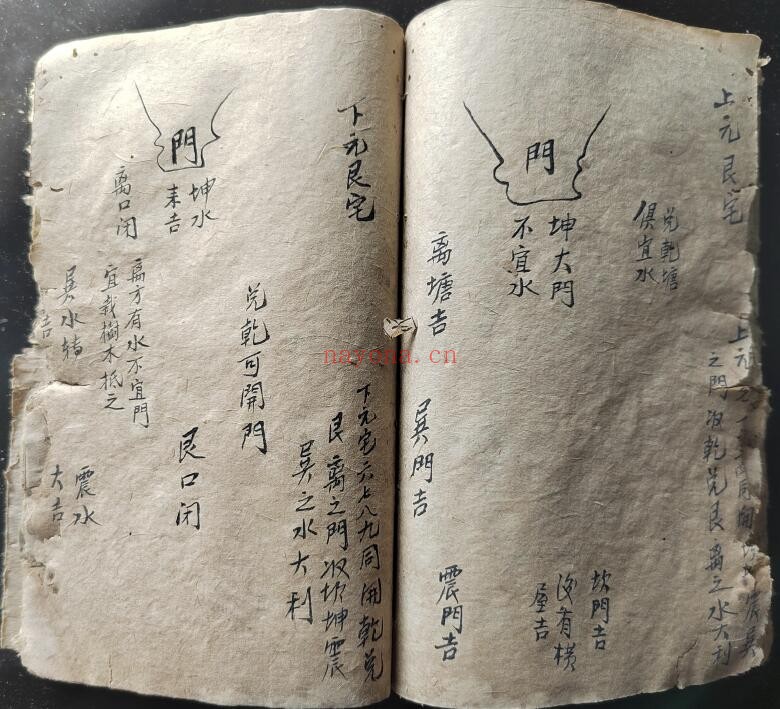 上元艮宅
兑乾塘
俱宜水
門
坤大門
不宜水
离塘吉
巽門吉
震門吉
坎門吉
後有横
屋吉
上元
之門収乾兑艮离之水大利
下元艮宅
門
坤水
来吉
离口闭
兑乾可開門
离方有水不宜門
宜栽樹木抵之
巽水特
吉
艮口闭
震水
大吉
下元宅六七八九同開乾兑
艮离之門収坎坤震
巽之水大利
nayona.cn